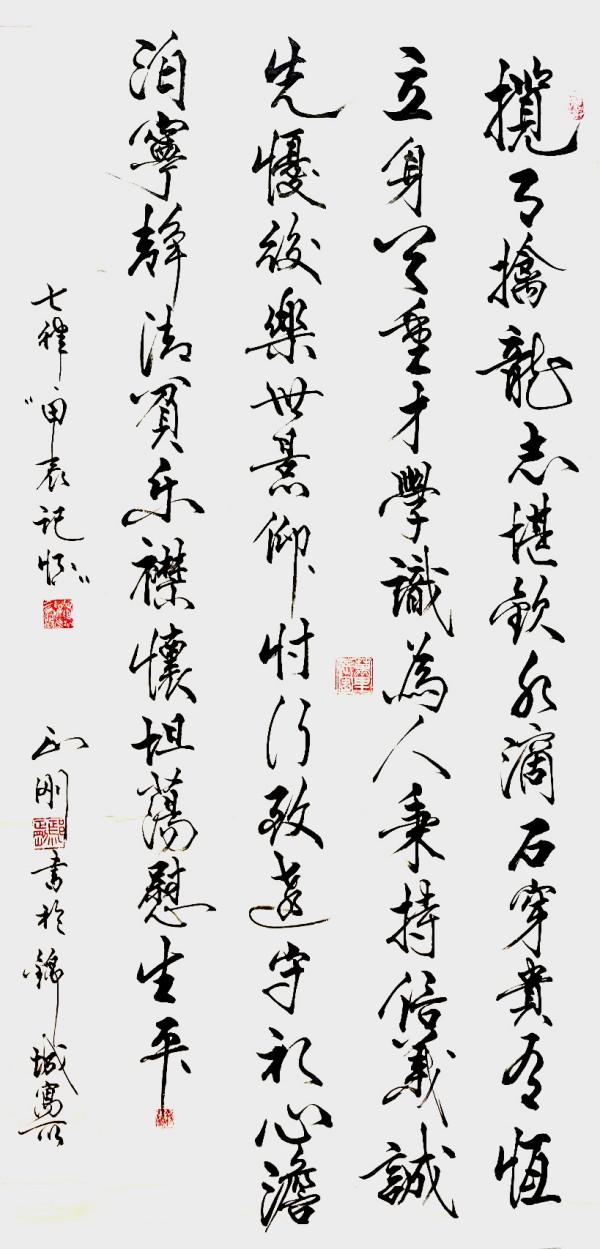 攬月擒龍志堪欽水滴石穿貴有恆
立身首重才學識為人秉持信義誠
先懮後樂世景仰忖行致遠守初心澹
泊寧靜清貧乐襟懷坦蕩慰生平
七律"甲辰記懷"
正刚書於錦城寓所